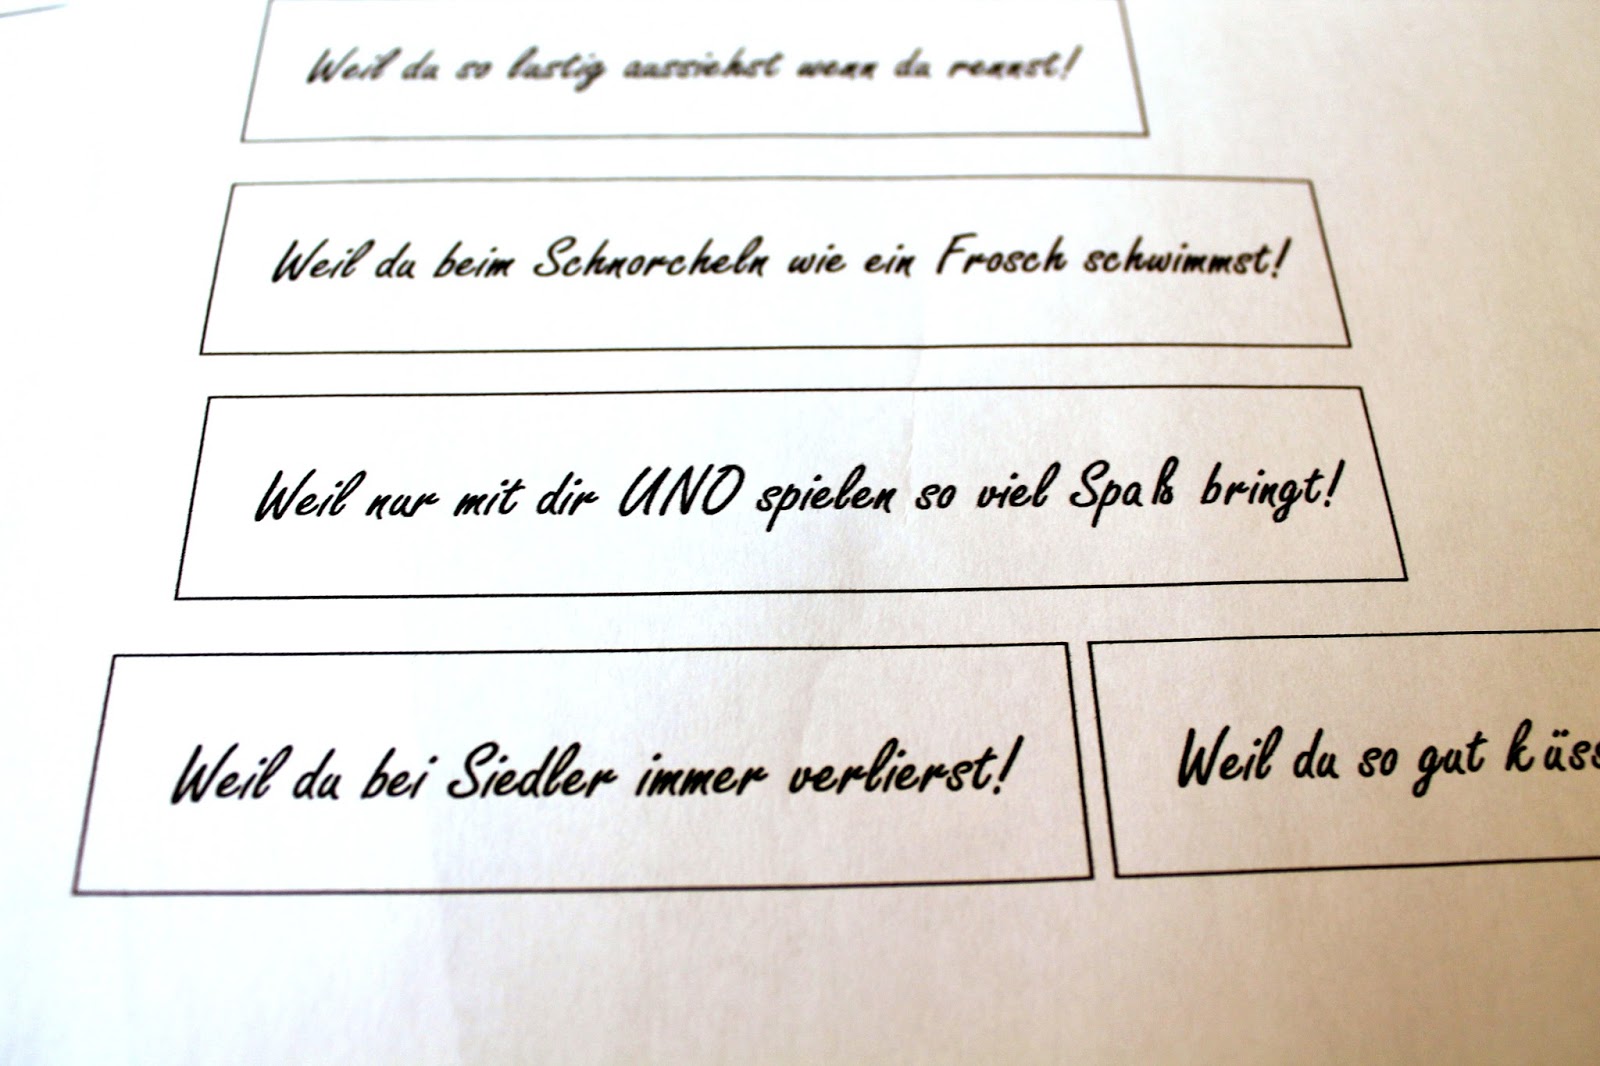 Weil du so lustig aussiehst wenn du rennst!
Weil du beim Schnorcheln wie ein Frosch schwimmst!
Weil nur mit dir UNO spielen so viel Spaß bringt!
Weil du bei Siedler immer verlierst!
Weil du so gut